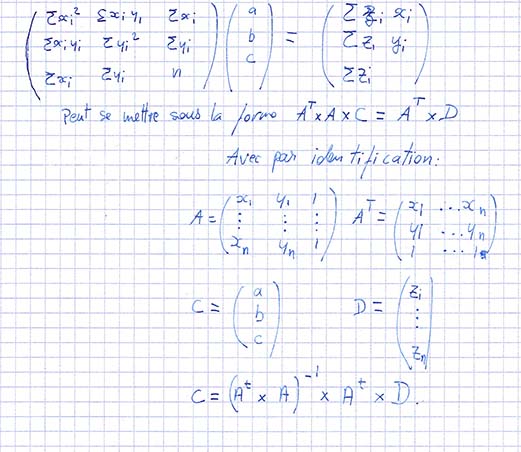 Σxi² Σxiyi Σxi a Σzi xi
Σxiyi Σyi² Σyi b = Σzi yi
Σxi Σyi n c Σzi
Peut se mettre sous la forme A^T × A × C = A^T × D
Avec par identification:
A = (x1 y1 1 ⋮ ⋮ ⋮ xn yn 1) A^T = (x1 ...xn y1 ...yn 1 ...1)
C = (a b c) D = (zi ⋮ zn)
C = (A^t × A)^-1 × A^t × D.